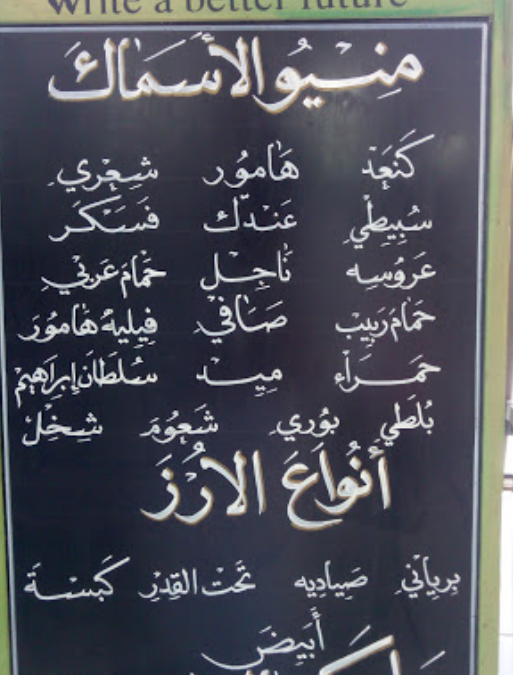 write a better future
منيو الأسماك
كنعد هامور شعري
سبيطي عندك فسكر
عروسه ناجل حمام عربي
حمام ربيب صافي فيليه هامور
حمراء ميد سلطان إبراهيم
بلطي بوري شعوم شخل
أنواع الأرز
برياني صياديه تحت القدر كبسة
أبيض